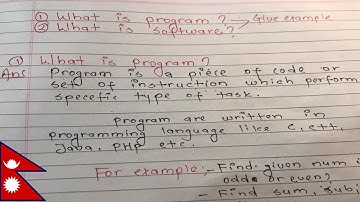 ① What is program? → Give example
② What is software?
① What is program?
Ans Program is a piece of code or
set of instruction which perform
specefic type of task.
program are written in
programming language like C, C++,
Java, PHP etc.
For example:- - Find given num is
odd or even?
- Find sum, sub